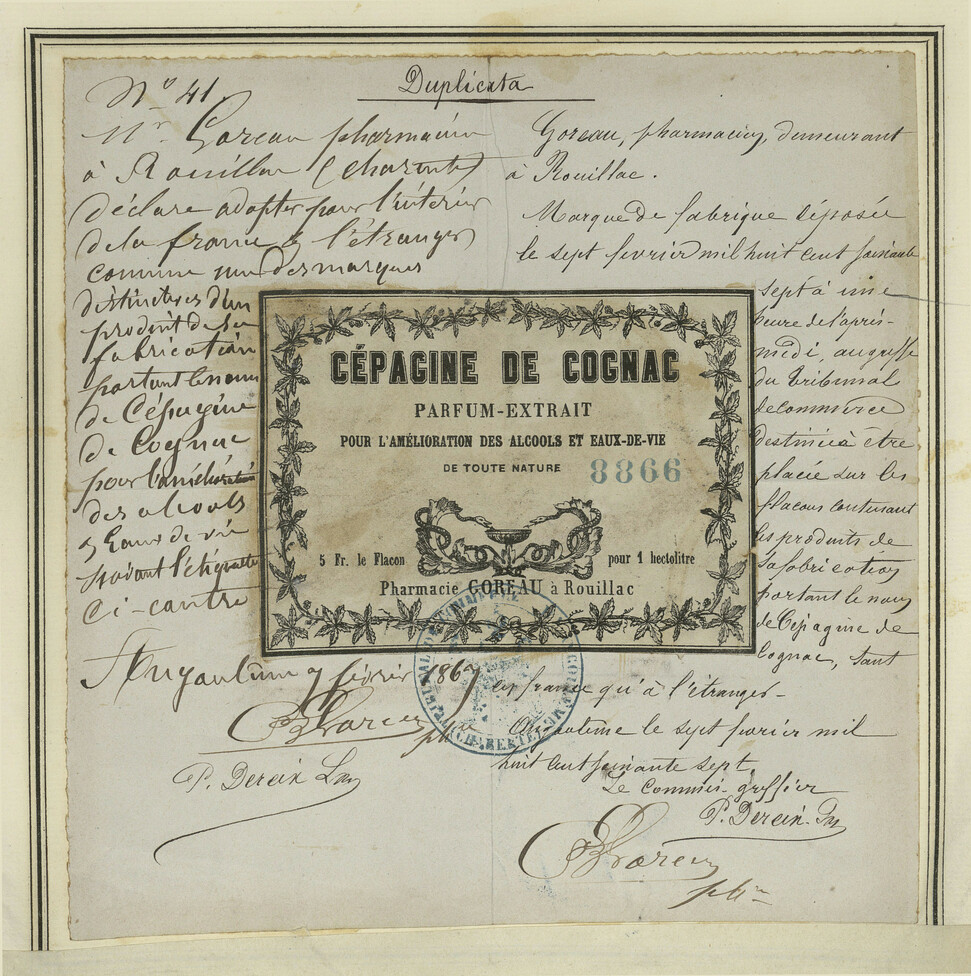 Duplicata
N° 41
Mr Goreau pharmacien
à Rouillac (Charente)
déclare adopter pour l'intérieur
de la france & l'étranger
comme une des marques
distinctives d'un
produit de sa
fabrication
portant le nom
de Cépagine
de Cognac
pour l'amélioration
des alcools
& Eaux de vie
suivant l'étiquette
Ci-contre
Angoulême 7 février 1867
Goreau
phien
P. Derein
Goreau, pharmacien, demeurant
à Rouillac.
Marque de fabrique déposée
le sept fevrier mil huit cent soixante
sept à une
heure de l'après-
midi, au greffe
du tribunal
de commerce
destinée à être
placée sur les
flacons contenant
les produits de
sa fabrication
portant le nom
de Cépagine de
Cognac, tant
en france qu'à l'étranger-
Angoulême le sept fevrier mil
huit cent soixante sept,
Le Commis-greffier
P. Derein
Goreau
phien
CÉPAGINE DE COGNAC
PARFUM-EXTRAIT
POUR L'AMÉLIORATION DES ALCOOLS ET EAUX-DE-VIE
DE TOUTE NATURE
8866
5 Fr. le Flacon
pour 1 hectolitre
Pharmacie GOREAU à Rouillac